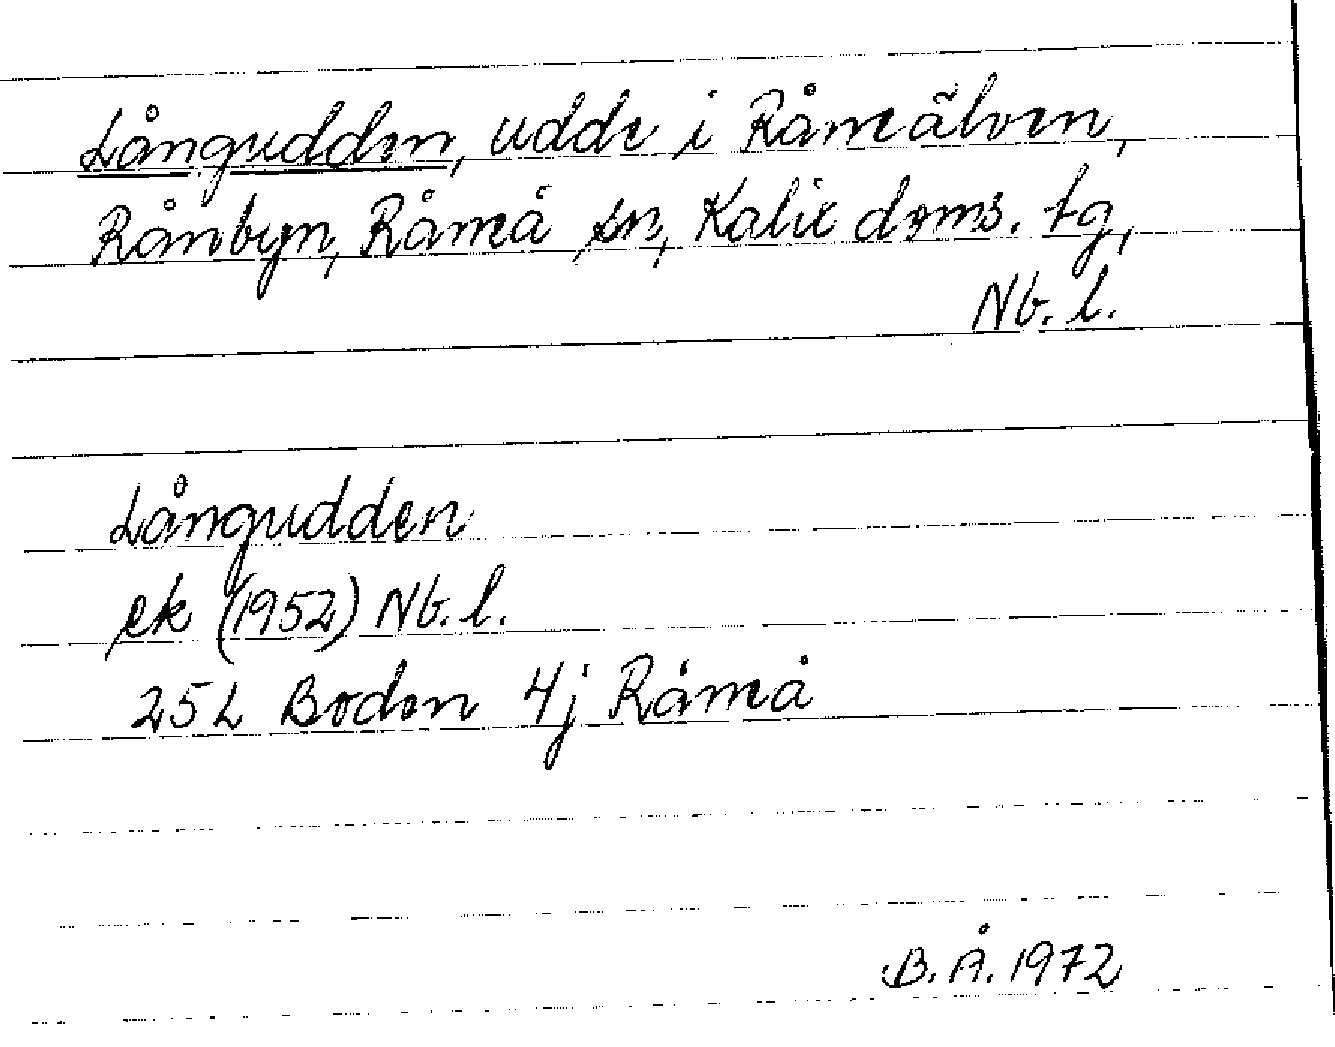 Långudden, udde i Råneälven,
Rånbyn, Råneå sn, Kalix doms. tg,
Nb. l.
Långudden
ek (1952) Nb. l.
25L Boden 4j Råneå
B. Å. 1972